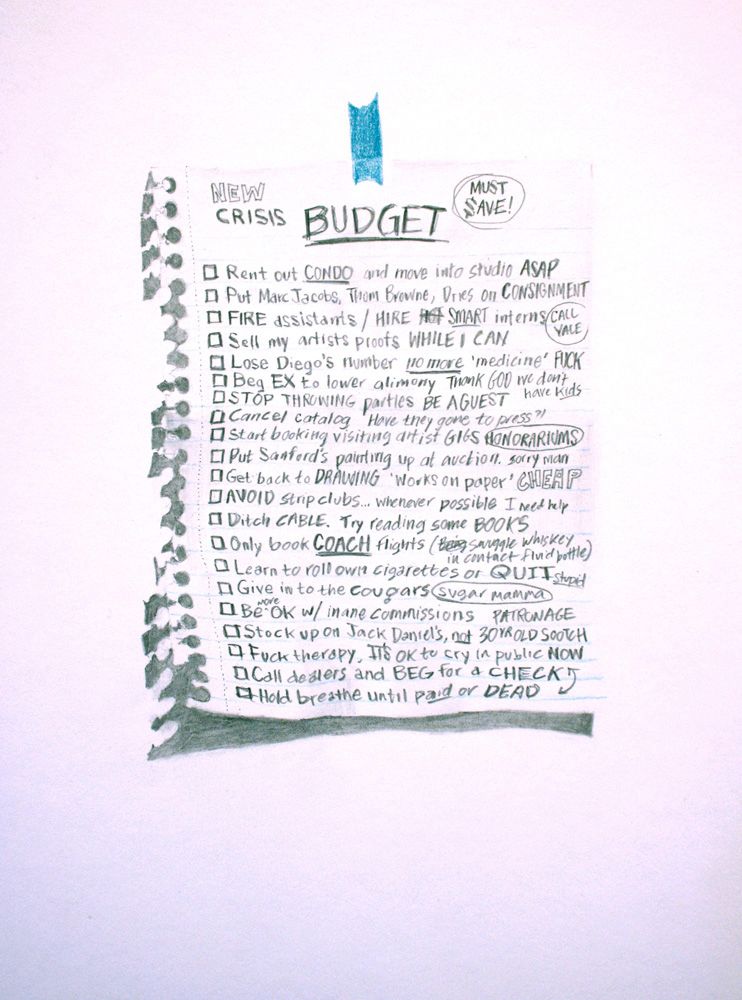 NEW
CRISIS BUDGET
MUST
$AVE!
Rent out CONDO and move into studio ASAP
Put Marc Jacobs, Thom Browne, Dries on CONSIGNMENT
FIRE assistants / HIRE HOT SMART interns CALL
YALE
Sell my artists proofs WHILE I CAN
Lose Diego's number no more 'medicine' FUCK
Beg EX to lower alimony Thank GOD we don't
have kids
STOP THROWING parties BE A GUEST
Cancel catalog "Have they gone to press?!
Start booking visiting artist GIGS HONORARIUMS
Put Sanford's painting up at auction. sorry man
Get back to DRAWING 'works on paper' CHEAP
AVOID strip clubs... whenever possible I need help
Ditch CABLE. Try reading some BOOKS
Only book COACH flights (Bring smuggle whiskey
in contact fluid bottle)
Learn to roll own cigarettes or QUIT stupid
Give in to the cougars sugar mamma
Be more OK w/ inane commissions PATRONAGE
Stock up on Jack Daniel's, not 30 YR OLD SCOTCH
Fuck therapy, It's OK to cry in public NOW
Call dealers and BEG for a CHECK
Hold breathe until paid or DEAD